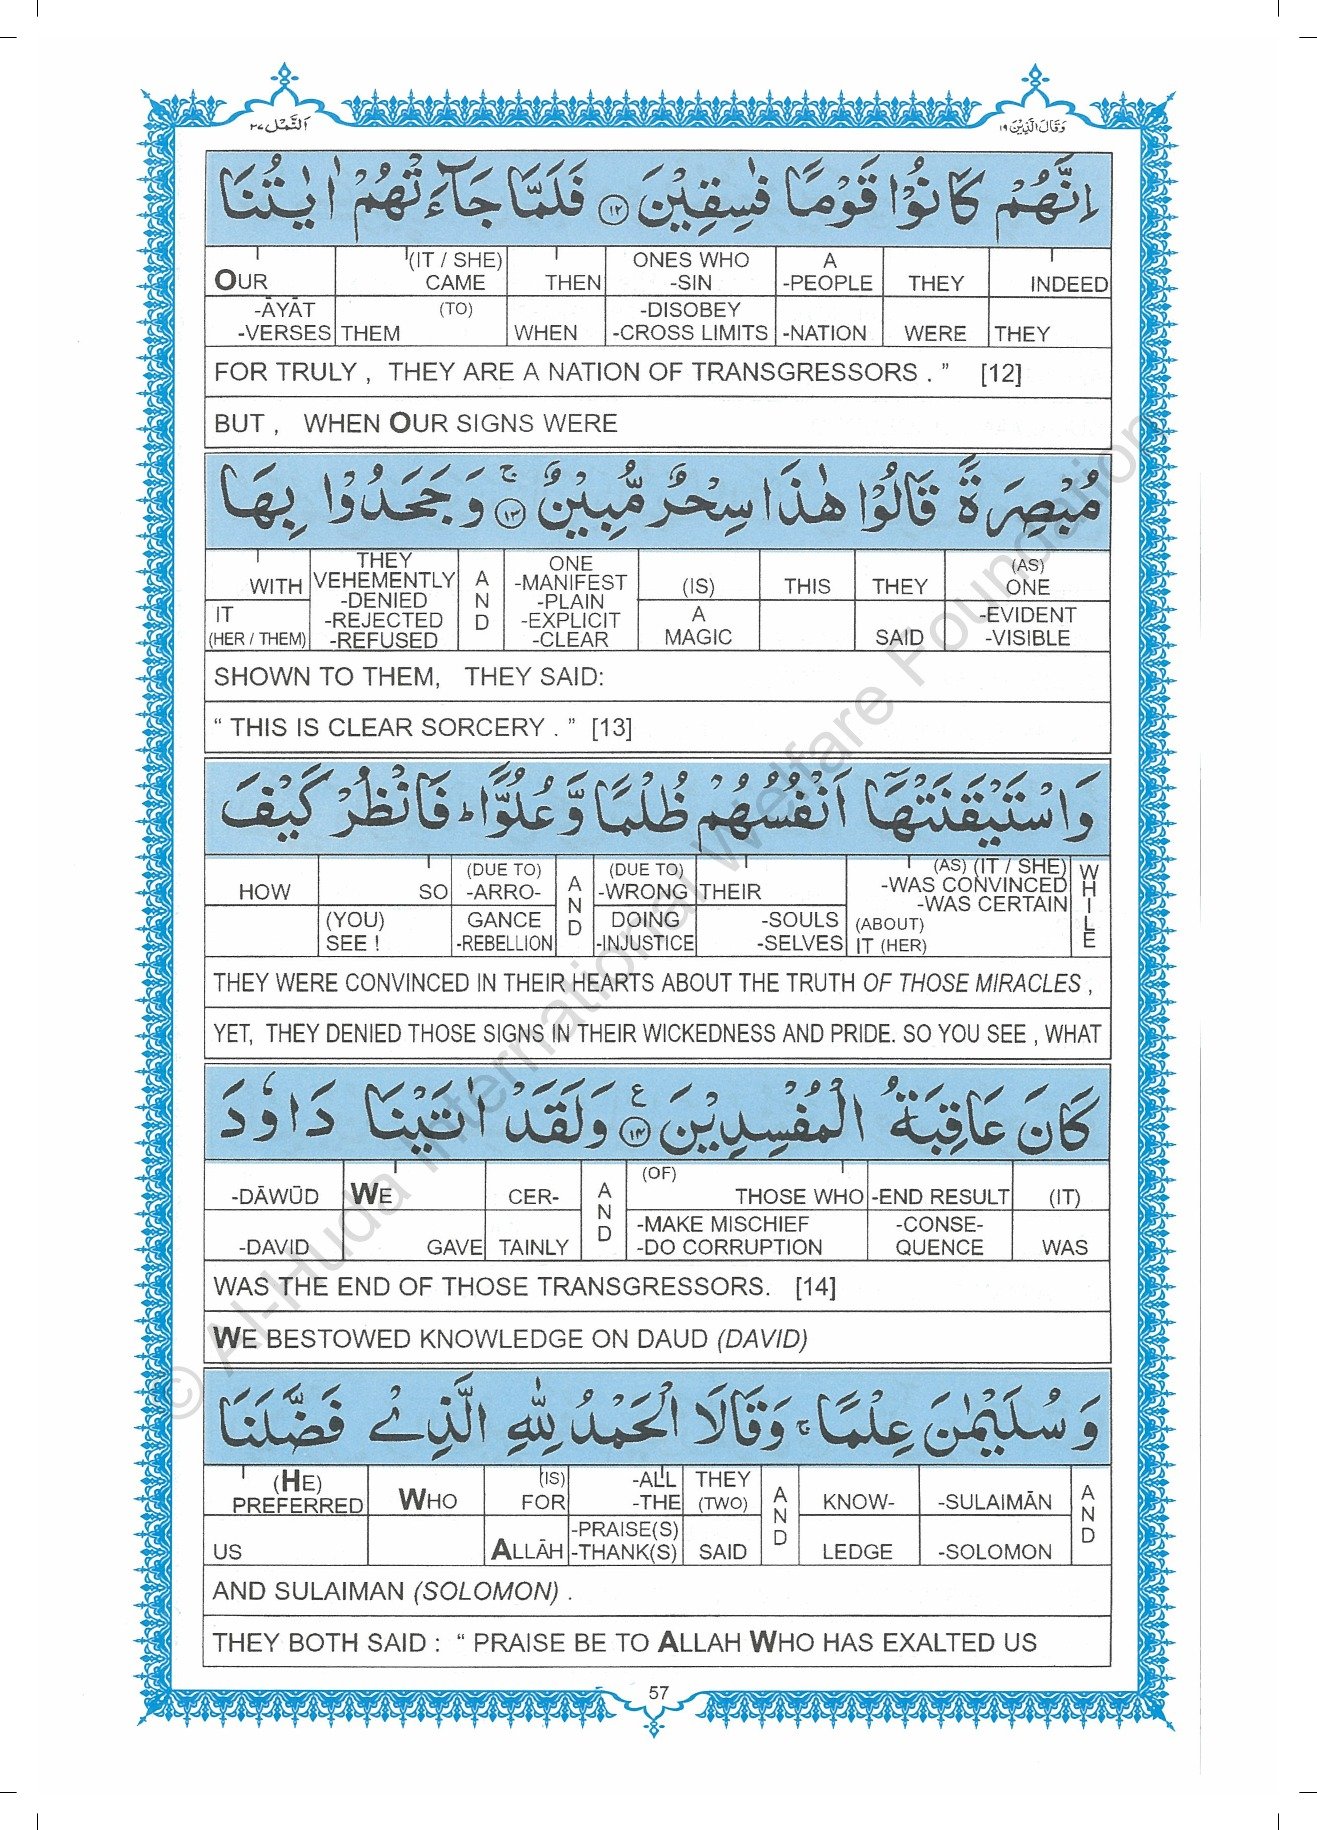 اَلنَّمْل ٢٧
وَقَالَ الَّذِيْنَ ١٩
اِنَّهُمْ كَانُوْا قَوْمًا فٰسِقِيْنَ ١٢ فَلَمَّا جَآءَتْهُمْ اٰيٰتُنَا
OUR (IT / SHE) CAME THEN ONES WHO -SIN A -PEOPLE THEY INDEED
-ĀYĀT -VERSES THEM (TO) WHEN -DISOBEY -CROSS LIMITS -NATION WERE THEY
FOR TRULY , THEY ARE A NATION OF TRANSGRESSORS . ” [12]
BUT , WHEN OUR SIGNS WERE
مُبْصِرَةً قَالُوْا هٰذَا سِحْرٌ مُّبِيْنٌ ١٣ ج وَجَحَدُوْا بِهَا
WITH THEY VEHEMENTLY -DENIED -REJECTED -REFUSED AND ONE -MANIFEST -PLAIN -EXPLICIT -CLEAR (IS) THIS THEY (AS) ONE
IT (HER / THEM) A MAGIC SAID -EVIDENT -VISIBLE
SHOWN TO THEM, THEY SAID:
“ THIS IS CLEAR SORCERY . ” [13]
وَاسْتَيْقَنَتْهَآ اَنْفُسُهُمْ ظُلْمًا وَّعُلُوًّا ط فَانْظُرْ كَيْفَ
HOW SO (DUE TO) -ARRO- AND (DUE TO) -WRONG THEIR (AS) (IT / SHE) -WAS CONVINCED -WAS CERTAIN WHILE
(YOU) SEE ! GANCE -REBELLION DOING -INJUSTICE -SOULS -SELVES (ABOUT) IT (HER)
THEY WERE CONVINCED IN THEIR HEARTS ABOUT THE TRUTH OF THOSE MIRACLES ,
YET, THEY DENIED THOSE SIGNS IN THEIR WICKEDNESS AND PRIDE. SO YOU SEE , WHAT
كَانَ عَاقِبَةُ الْمُفْسِدِيْنَ ١٤ ع وَلَقَدْ اٰتَيْنَا دَاوٗدَ
-DĀWŪD WE CER- AND (OF) THOSE WHO -END RESULT (IT)
-DAVID GAVE TAINLY -MAKE MISCHIEF -DO CORRUPTION -CONSE- QUENCE WAS
WAS THE END OF THOSE TRANSGRESSORS. [14]
WE BESTOWED KNOWLEDGE ON DAUD (DAVID)
وَسُلَيْمٰنَ عِلْمًا ج وَقَالَا الْحَمْدُ لِلّٰهِ الَّذِيْ فَضَّلَنَا
(HE) PREFERRED WHO (IS) FOR -ALL -THE THEY (TWO) AND KNOW- -SULAIMĀN AND
US ALLĀH -PRAISE(S) -THANK(S) SAID LEDGE -SOLOMON
AND SULAIMAN (SOLOMON) .
THEY BOTH SAID : “ PRAISE BE TO ALLAH WHO HAS EXALTED US
57
© Al-Huda International Welfare Foundation